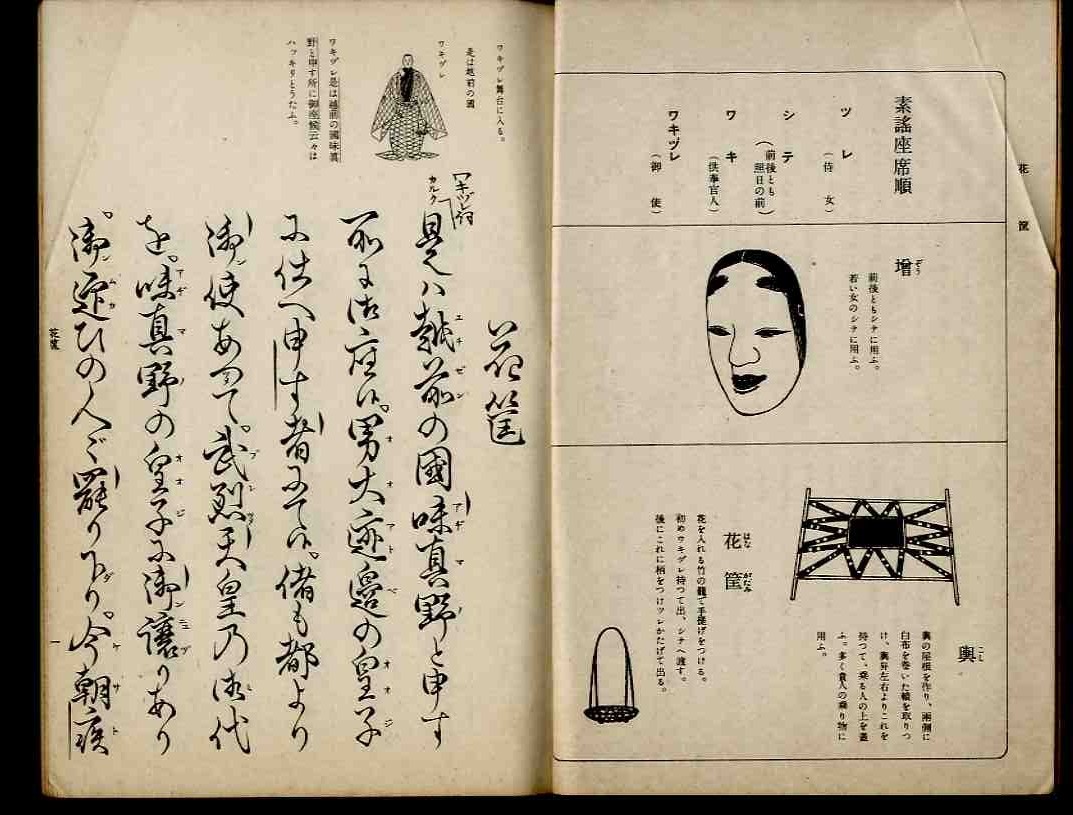 花
筺
素謠座席順
ツレ
(侍女)
シテ
(前後とも
照日の前)
ワキ
(供奉官人)
ワキヅレ
(御使)
增
ぞう
前後ともシテに用ふ。
若い女のシテに用ふ。
輿
こし
輿の屋根を作り、兩側に
白布を卷いた轅を取りつ
け、輿舁左右よりこれを
持つて、乘る人の上を蓋
ふ。多く貴人の乘り物に
用ふ。
花筺
はながたみ
花を入れる竹の籠で手提げをつける。
初めワキヅレ持つて出、シテへ渡す。
後にこれに柄をつけツレかたげて出る。
ワキヅレ舞台に入る。
是は越前の國
ワキヅレ
ワキヅレ是は越前の國味眞
野と申す所に御座候云々は
ハッキリとうたふ。
花筐
ワキヅレ詞
カルク
是ハ越前の國味真野と申す
エチゼン アヂマノ
所に御座候。男大迹邊の皇子
オオアトベ オオジ
に仕へ申す者にて候。偖も都より
御使あつて。武烈天皇乃御代
を。味真野の皇子に御讓りあり
アヂマノ オオジ
御迎ひの人〻罷り下り。今朝疾
ンムカ ダ ケサト
花筐
一